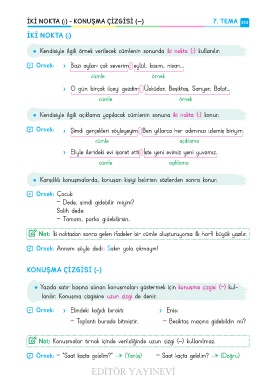 İKİ NOKTA (:) - KONUŞMA ÇİZGİSİ (–) 7. TEMA
İKİ NOKTA (:)
Kendisiyle ilgili örnek verilecek cümlenin sonunda iki nokta (:) kullanılır.
Örnek: Bazı ayları çok severim: eylül, kasım, nisan...
cümle örnek
O gün birçok ilçeyi gezdim: Üsküdar, Beşiktaş, Sarıyer, Balat...
cümle örnek
Kendisiyle ilgili açıklama yapılacak cümlenin sonuna iki nokta (:) konur.
Örnek: Şimdi gerçekleri söyleyeyim: Ben yıllarca her adımınızı izlemiş biriyim.
cümle açıklama
Eliyle ilerideki evi işaret etti: İşte yeni evimiz yeni yuvamız.
cümle açıklama
Karşılıklı konuşmalarda, konuşan kişiyi belirten sözlerden sonra konur.
Örnek: Çocuk:
– Dede, şimdi gidebilir miyim?
Salih dede:
– Tamam, parka gidebilirsin.
Not: İki noktadan sonra gelen ifadeler bir cümle oluşturuyorsa ilk harfi büyük yazılır.
Örnek: Annem şöyle dedi: Sakın yola çıkmayın!
KONUŞMA ÇİZGİSİ (–)
Yazıda satır başına alınan konuşmaları göstermek için konuşma çizgisi (–) kul-
lanılır. Konuşma çizgisine uzun çizgi de denir.
Örnek: Elindeki kağıdı bıraktı: Enis:
– Toplantı burada bitmiştir. – Beşiktaş maçına gidebildin mi?
Not: Konuşmalar tırnak içinde verildiğinde uzun çizgi (–) kullanılmaz.
Örnek: – "Saat kaçta gelelim?" → (Yanlış) – Saat kaçta gelelim? → (Doğru)
EDİTÖR YAYINEVİ